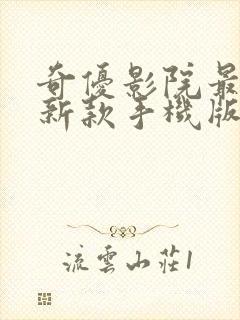 奇優影院最
新款手機版
流雲山莊1